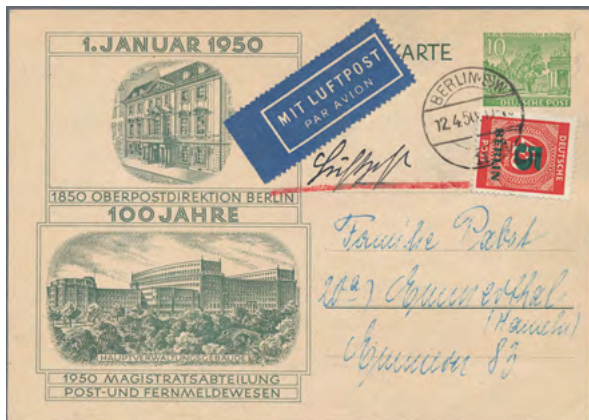 1. JANUAR 1950
1850 OBERPOSTDIREKTION BERLIN
100 JAHRE
HAUPTVERWALTUNGSGEBÄUDE
1950 MAGISTRATSABTEILUNG
POST-UND FERNMELDEWESEN
MIT LUFTPOST
PAR AVION
KARTE
10
DEUTSCHE POST
BERLIN SW
12.4.50
5
BERLIN
DEUTSCHE
POST
Luftpost
Familie Pabst
20a) Emmerthal
(Hameln)
Emmern 83